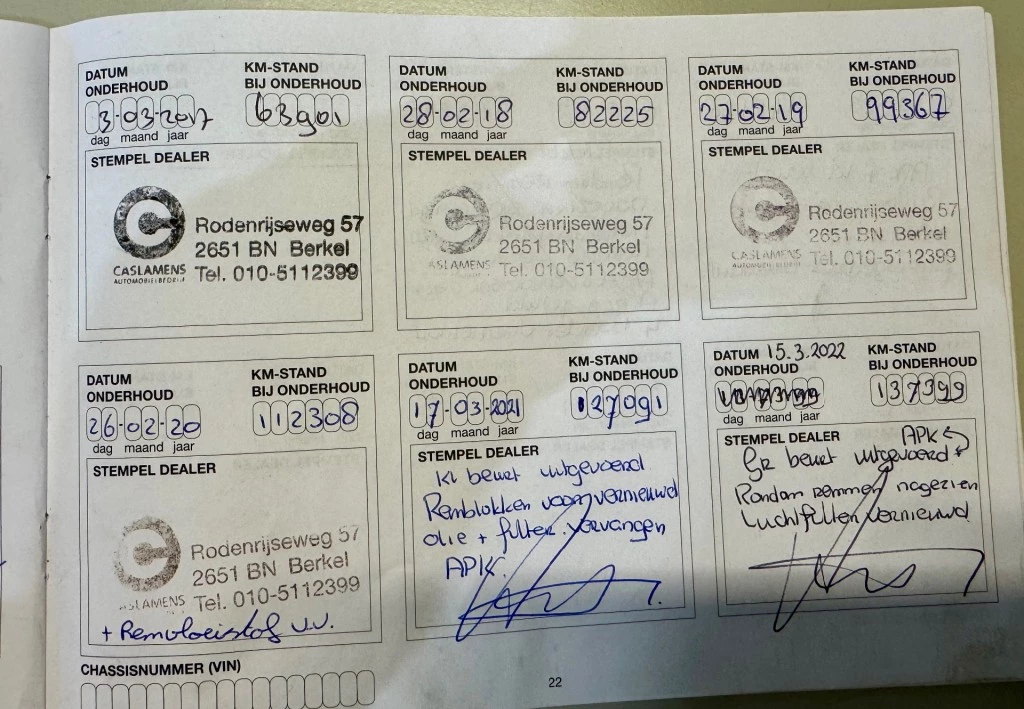 DATUM ONDERHOUD
KM-STAND BIJ ONDERHOUD
3-03-2017
63901
dag maand jaar
STEMPEL DEALER
Rodenrijseweg 57
2651 BN Berkel
CASLAMENS
AUTOMOBIELBEDRIJF
Tel. 010-5112399
DATUM ONDERHOUD
KM-STAND BIJ ONDERHOUD
28-02-18
82225
dag maand jaar
STEMPEL DEALER
Rodenrijseweg 57
2651 BN Berkel
ASLAMENS
Tel. 010-5112399
DATUM ONDERHOUD
KM-STAND BIJ ONDERHOUD
27-02-19
99367
dag maand jaar
STEMPEL DEALER
Rodenrijseweg 57
2651 BN Berkel
CASLAMENS
AUTOMOBIELBEDRIJF
Tel. 010-5112399
DATUM ONDERHOUD
KM-STAND BIJ ONDERHOUD
26-02-20
112308
dag maand jaar
STEMPEL DEALER
Rodenrijseweg 57
2651 BN Berkel
ASLAMENS
Tel. 010-5112399
+ Remvloeistof v.v.
DATUM ONDERHOUD
KM-STAND BIJ ONDERHOUD
17-03-2021
127091
dag maand jaar
STEMPEL DEALER
Kl beurt uitgevoerd
Remblokken voor vernieuwd
olie + filter vervangen
APK.
DATUM 15.3.2022
ONDERHOUD
KM-STAND BIJ ONDERHOUD
137399
dag maand jaar
STEMPEL DEALER
APK
Gr beurt uitgevoerd
Rondom remmen nagezien
Luchtfilter vernieuwd
CHASSISNUMMER (VIN)
22